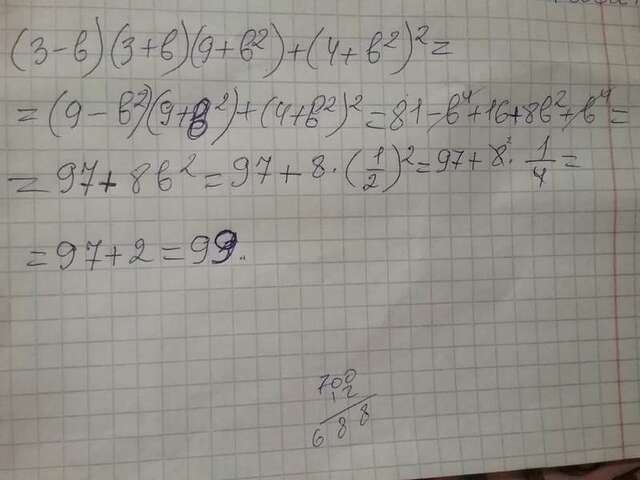 (3-b)(3+b)(9+b²)+(4+b²)²=
=(9-b²)(9+b²)+(4+b²)²=81-b⁴+16+8b²+b⁴=
=97+8b²=97+8·(1/2)²=97+8·1/4=
=97+2=99.
700
12
688